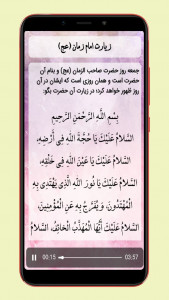 زیارت امام زمان (عج)
جمعه روز حضرت صاحب الزمان (عج) و بنام آن
حضرت است و همان روزی است که ایشان در آن
روز ظهور خواهد کرد؛ در زیارت آن حضرت بگو:
بِسْمِ اللَّهِ الرَّحْمَنِ الرَّحِيمِ
السَّلامُ عَلَيْكَ يَا حُجَّةَ اللَّهِ فِي أَرْضِهِ،
السَّلامُ عَلَيْكَ يَا عَيْنَ اللَّهِ فِي خَلْقِهِ،
السَّلامُ عَلَيْكَ يَا نُورَ اللَّهِ الَّذِي يَهْتَدِي بِهِ
الْمُهْتَدُونَ، وَ يُفَرَّجُ بِهِ عَنِ الْمُؤْمِنِينَ،
السَّلامُ عَلَيْكَ أَيُّهَا الْمُهَذَّبُ الْخَائِفُ، السَّلامُ
00:15 03:57